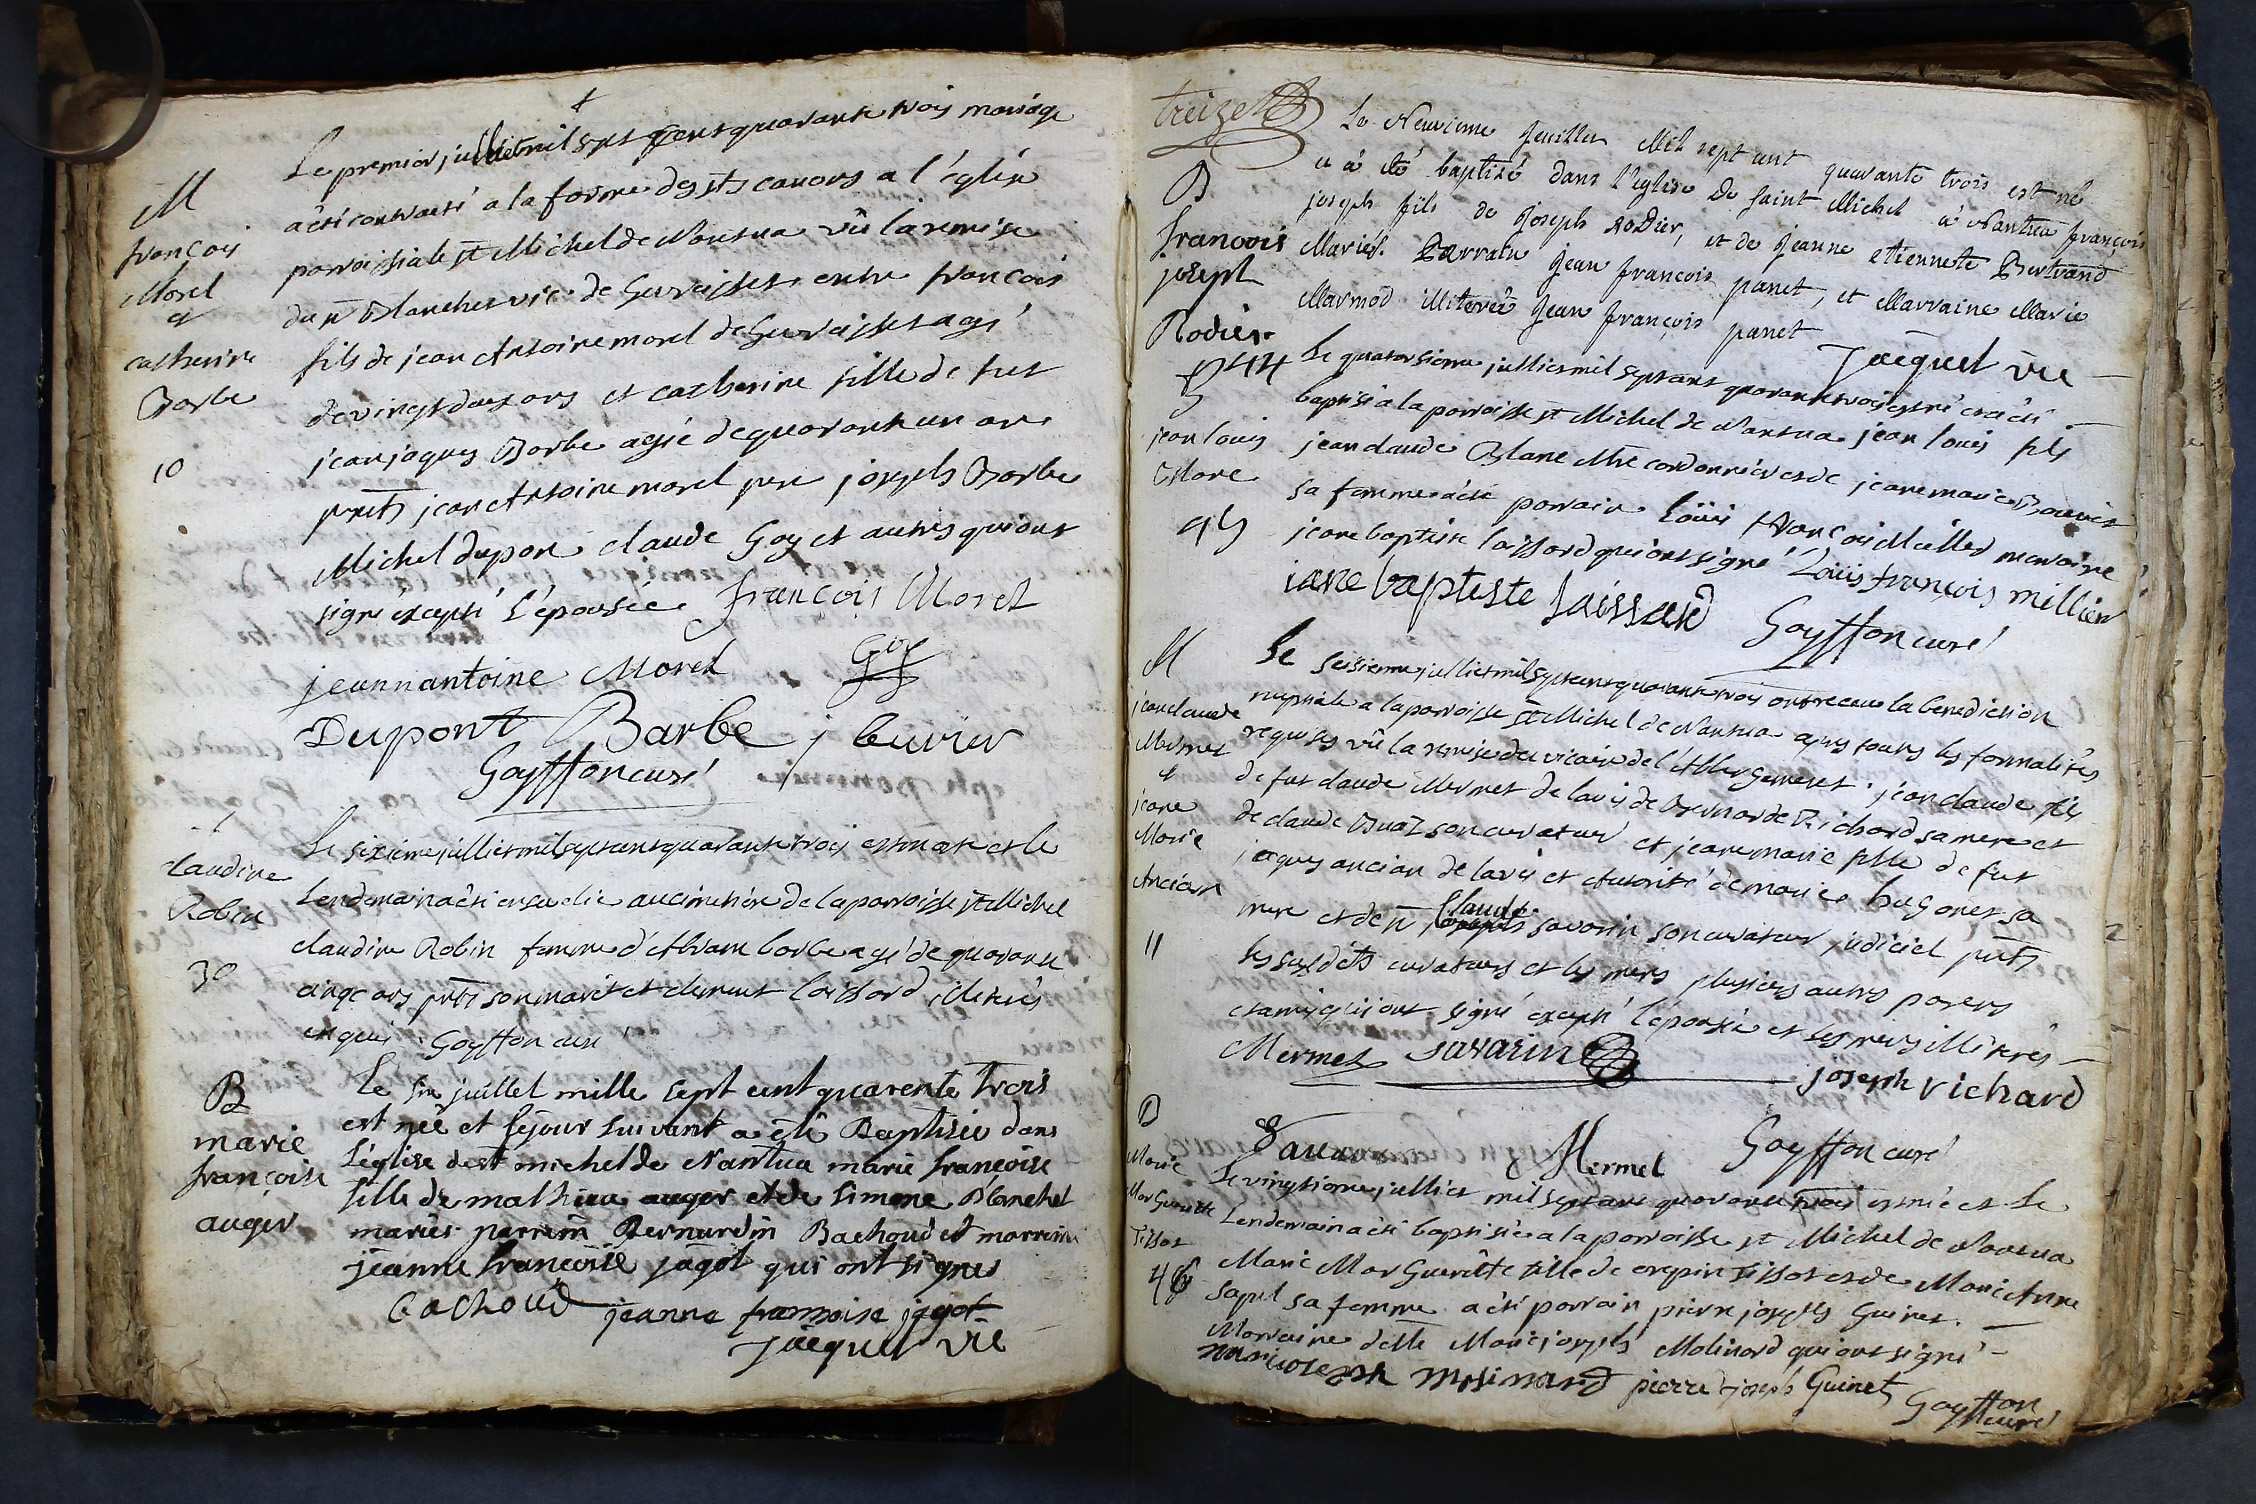 Le premier julliet mil sept cent quarante trois mariage
M
a été contracté a la forme des sts canons a l'église
françois
Morel
et
catherine
Barbe
paroissiale st Michel de Nantua vû la remise
du Blanchet vic. de Gevraisset entre françois
fils de jean Antoine morel de Gevraisset agé
de vingt deux ans et catherine fille de fut
jean jaques Barbe agée de quarante un ans
10
pnts jean Antoine morel pere joseph Barbe
Michel dupon claude Goy et autres qui ont
signé excepté l'épousée françois Morel
jeannantoine Morel Goy
Dupont Barbe j Cuvier
Goyffon curé
claudine
Robin
30
Le sixieme julliet mil sept cent quarante trois est morte et le
Lendemain a été ensevelie au cimetiére de la paroisse st Michel
claudine Robin femme d'Abram barbe agé de quarante
cinq ans pnts son marit et clement laissard illiterés
enquis Goyffon curé
B
marie
françoise
auger
Le juillet mille sept cent quarente trois
est née et le jour suivant a été Baptisée dans
L'église de st michel de Nantua marie françoise
fille de mathieu auger et de simone Blanchet
mariés parrein Bernardin Bachoud et marreine
jeanne françoise jagot qui ont signés
Bachoud jeanne franssoise jagot
Jacquet vic
treize
B
francois
joseph
Rodier
44
Le Neuvieme Jeuillet Mil sept cent quarante trois est né
et a été baptizé dans l'eglise De saint Michel a Nantua françois
joseph fils de joseph RoDier, et de jeanne etiennete Bertrand
Mariés. Parrain jean françois panet, et Marraine Marie
Marmod illiterée jean françois panet
Jacquet vic
B
jean louis
Blanc
45
Le quatorsieme julliet mil sept cent quarante trois est né et a été
baptisé a la paroisse st Michel de Nantua jean louis fils
jean claude Blanc Mtre cordonnier et de jeane marie Bouvier
sa femme a été parrain Loüis François Millier maraine
jeane baptiste laissard qui ont signé Loüis françois millier
iane baptiste laissard Goyffon curé
M
jean claude
Mermet
et
jeane
Marie
Ancian
11
Le seisieme julliet mil sept cent quarante trois ont receu la benediction
nuptiale a la paroisse st Michel de Nantua apres toutes les formalités
requises vû la remise du vicaire de l'Abbergement. jean claude fils
de fut claude Mermet de lavis de Bernarde Richard sa mere et
de claude Buaz son curateur et jeane marie fille de fut
jaques ancian de lavis et Autorité de marie hugonet sa
mere et de Claude savarin son curateur judiciel pnts
les susdits curateurs et les meres plusieurs autres parens
et amis qui ont signé excepté l'épousée et les meres illiterés
Mermet savarin joseph richard
Mermet Goyffon curé
B
Marie
Marguerite
Tissot
46
Le vingtieme julliet mil sept cent quarante trois est née et le
Lendemain a été baptisée a la paroisse st Michel de Nantua
Marie Marguerite fille de crepin Tissot et de Marie Anne
sapel sa femme a été parrain pierre joseph Guinet
Marraine delle Marie joseph Molinard qui ont signé
marie iosepk molinard pierre joseph Guinet Goyffon
curé